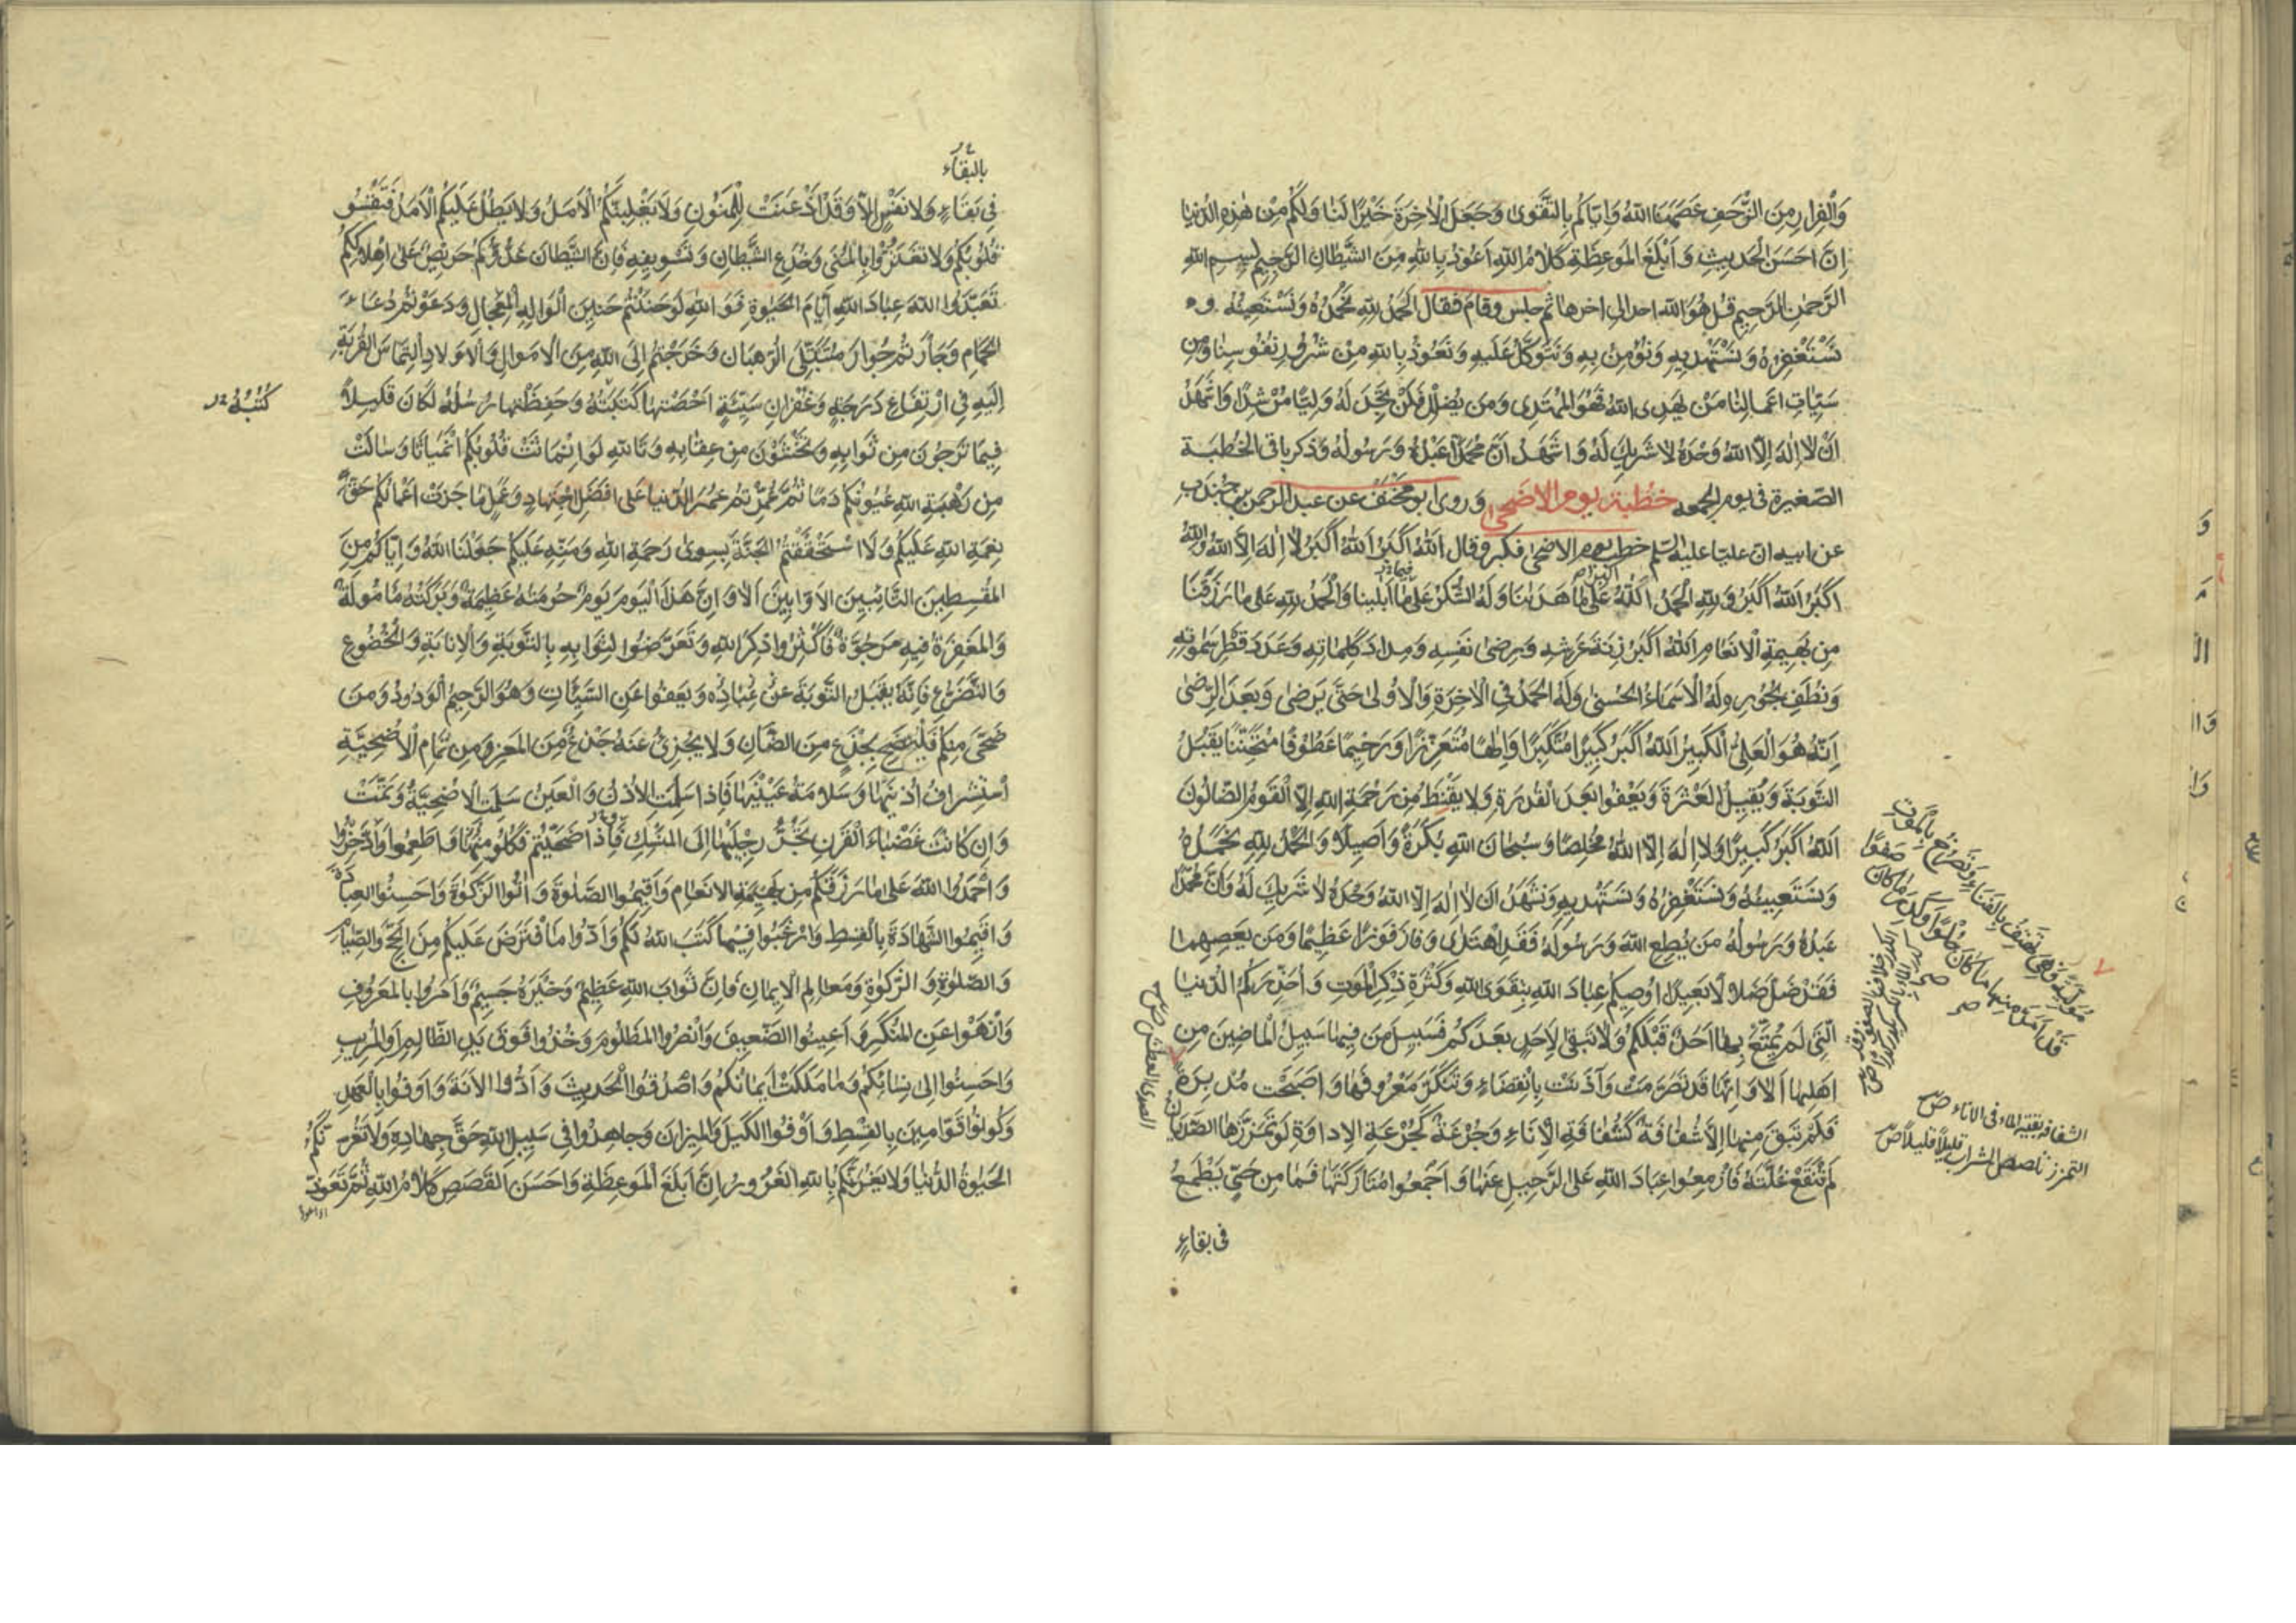 وَالْفِرَارِ مِنَ الزَّحْفِ عَصَمَنَا اللهُ وَاِيَّاكُمْ بِالتَّقْوٰى وَجَعَلَ الْاٰخِرَةَ خَيْرًا لَنَا وَلَكُمْ مِنْ هٰذِهِ الدُّنْيَا
اِنَّ اَحْسَنَ الْحَدِيثِ وَ اَبْلَغَ الْمَوْعِظَةِ كَلَامُ اللهِ اَعُوْذُ بِاللهِ مِنَ الشَّيْطَانِ الرَّجِيمِ بِسْمِ اللهِ
الرَّحْمٰنِ الرَّحِيمِ قُلْ هُوَ اللهُ احد الى اخرها ثم جلس وقام فقال اَلْحَمْدُ لِلهِ نَحْمَدُهُ وَنَسْتَعِينُهُ و
نَسْتَغْفِرُهُ وَنَسْتَهْدِيهِ وَنُؤْمِنُ بِهِ وَنَتَوَكَّلُ عَلَيْهِ وَنَعُوْذُ بِاللهِ مِنْ شُرُورِ نُفُوسِنَا وَمِنْ
سَيِّاٰتِ اَعْمَالِنَا مَنْ يَهْدِى اللهُ فَهُوَ الْمُهْتَدِى وَمَنْ يُضْلِلْ فَلَنْ تَجِدَ لَهُ وَلِيًّا مُرْشِدًا وَاَشْهَدُ
اَنْ لَا اِلٰهَ اِلَّا اللهُ وَحْدَهُ لَا شَرِيكَ لَهُ وَ اَشْهَدُ اَنَّ مُحَمَّدًا عَبْدُهُ وَرَسُولُهُ وَذكر باقى الخُطْبَة
الصّغيرة فى يوم الجمعه خطبة يوم الاضحى وَروى ابو مخنف عن عبد الرحمن بن جندب
عن ابيه انّ عليّا عليه السّلم خطب يوم الاضحى فكبر وقال اَللهُ اَكْبَرُ اَللهُ اَكْبَرُ لَا اِلٰهَ اِلَّا اللهُ وَاللهُ
اَكْبَرُ اللهُ اَكْبَرُ وَلِلهِ الْحَمْدُ اَللهُ اَكْبَرُ عَلٰى مَا هَدٰينَا وَلَهُ الشُّكْرُ عَلٰى مَا اَبْلَينَا وَالْحَمْدُ لِلهِ عَلٰى مَا رَزَقَنَا
مِنْ بَهِيمَةِ الْاَنْعَامِ اَللهُ اَكْبَرُ زِنَةَ عَرْشِهِ وَرِضٰى نَفْسِهِ وَمِدَادَ كَلِمَاتِهِ وَعَدَدَ قَطْرِ سَمٰوَاتِهِ
وَنُطَفِ بُحُورِهِ لَهُ الْاَسْمَاءُ الْحُسْنٰى وَلَهُ الْحَمْدُ فِي الْاٰخِرَةِ وَالْاُولٰى حَتّٰى يَرْضٰى وَبَعْدَ الرِّضٰى
اِنَّهُ هُوَ الْعَلِىُّ الْكَبِيرُ اَللهُ اَكْبَرُ كَبِيرًا مُتَكَبِّرًا وَاِلٰهًا مُتَعَزِّزًا وَرَحِيمًا عَطُوفًا مُتَحَنِّنًا يَقْبَلُ
التَّوْبَةَ وَيُقِيلُ الْعَثْرَةَ وَيَعْفُوا بَعْدَ الْقُدْرَةِ وَلَا يَقْنَطُ مِنْ رَحْمَةِ اللهِ اِلَّا الْقَوْمُ الضَّالُّونَ
اَللهُ اَكْبَرُ كَبِيرًا وَلَا اِلٰهَ اِلَّا اللهُ مُخْلِصًا وَسُبْحَانَ اللهِ بُكْرَةً وَاَصِيلًا وَ الْحَمْدُ لِلهِ نَحْمَدُهُ
وَنَسْتَعِينُهُ وَنَسْتَغْفِرُهُ وَنَسْتَهْدِيهِ وَنَشْهَدُ اَنْ لَا اِلٰهَ اِلَّا اللهُ وَحْدَهُ لَا شَرِيكَ لَهُ وَاَنَّ مُحَمَّدًا
عَبْدُهُ وَرَسُولُهُ مَنْ يُطِعِ اللهَ وَرَسُولَهُ فَقَدِ اهْتَدٰى وَفَازَ فَوْزًا عَظِيْمًا وَمَنْ يَعْصِهِمَا
فَقَدْ ضَلَّ ضَلَالًا بَعِيدًا اُوصِيكُمْ عِبَادَ اللهِ بِتَقْوَى اللهِ وَكَثْرَةِ ذِكْرِ الْمَوْتِ وَاُحَذِّرَكُمُ الدُّنْيَا
الَّتِى لَمْ يُمَتَّعْ بِهَا اَحَدٌ قَبْلَكُمْ وَلَا تَبْقٰى لِاَحَدٍ بَعْدَكُمْ فَسَبِيلُ مَنْ فِيهَا سَبِيلُ الْمَاضِينَ مِنْ
اَهْلِهَا اَلَا وَاِنَّهَا قَدْ تَصَرَّمَتْ وَآذَنَتْ بِانْقِضَاءٍ وَتَنَكَّرَ مَعْرُوفُهَا وَاَصْبَحَتْ مُدْبِرَةً
فَلَمْ تَبْقَ مِنْهَا اِلَّا شُفَافَةٌ كَشُفَافَةِ الْاِنَاءِ وَجُرْعَةٌ كَجُرْعَةِ الْاِدَاوَةِ لَوْ تَمَزَّزَهَا الصَّدْيَانُ
لَمْ تَنْقَعْ غُلَّتَهُ فَاَزْمِعُوا عِبَادَ اللهِ عَلَى الرَّحِيلِ عَنْهَا وَ اَجْمِعُوا مُتَارَكَتَهَا فَمَا مِنْ حَىٍّ يَطْمَعُ
فى بقاءٍ
الشفافة بقية الماء فى الاناء ص
التمزز تمصص الشراب قليلًا قليلًا ص
بالبقاء
فِى بَقَاءٍ وَلَا نَفْسٍ اِلَّا وَقَدْ اَذْعَنَتْ لِلْمَنُونِ وَلَا يَغْلِبَنَّكُمُ الْاَمَلُ وَلَا يَطُلْ عَلَيْكُمُ الْاَمَدُ فَتَقْسُو
قُلُوبُكُمْ وَلَا تَغْتَرُّوا بِالْمُنٰى وَخُدَعِ الشَّيْطَانِ وَتَسْوِيفِهِ فَاِنَّ الشَّيْطَانَ عَدُوُّكُمْ حَرِيصٌ عَلٰى اِهْلَاكِكُمْ
تَعَبَّدُوا اللهَ عِبَادَ اللهِ اَيَّامَ الْحَيٰوةِ فَوَ اللهِ لَوْ حَنَنْتُمْ حَنِينَ الْوَالِهِ الْمِعْجَالِ وَدَعَوْتُمْ دُعَاءَ
الْحَمَامِ وَجَأَرْتُمْ جُوَارَ مُتَبَتِّلِى الرُّهْبَانِ وَخَرَجْتُمْ اِلَى اللهِ مِنَ الْاَمْوَالِ وَالْاَوْلَادِ اِلْتِمَاسَ الْقُرْبَةِ
اِلَيْهِ فِى ارْتِفَاعِ دَرَجَةٍ وَغُفْرَانِ سَيِّئَةٍ اَحْصَتْهَا كَتَبَتُهُ وَحَفِظَتْهَا رُسُلُهُ لَكَانَ قَلِيلًا
كُتُبُهُ
فِيمَا تَرْجُونَ مِنْ ثَوَابِهِ وَتَخْشَوْنَ مِنْ عِقَابِهِ وَتَاللهِ لَوِ انْمَاثَتْ قُلُوبُكُمُ انْمِيَاثًا وَسَالَتْ
مِنْ رَهْبَةِ اللهِ عُيُونُكُمْ دَمًا ثُمَّ عُمِّرْتُمْ عُمْرَ الدُّنْيَا عَلٰى اَفْضَلِ اجْتِهَادٍ وَعَمَلٍ مَا جَزَتْ اَعْمَالُكُمْ حَقَّ
نِعْمَةِ اللهِ عَلَيْكُمْ وَلَا اسْتَحْقَقْتُمُ الْجَنَّةَ بِسِوٰى رَحْمَةِ اللهِ وَمَنِّهِ عَلَيْكُمْ جَعَلَنَا اللهُ وَاِيَّاكُمْ مِنَ
الْمُقْسِطِينَ التَّائِبِينَ الْاَوَّابِينَ اَلَا وَ اِنَّ هٰذَا الْيَوْمَ يَوْمٌ حُرْمَتُهُ عَظِيمَةٌ وَبَرَكَتُهُ مَأْمُولَةٌ
وَالْمَغْفِرَةُ فِيهِ مَرْجُوَّةٌ فَاَكْثِرُوا ذِكْرَ اللهِ وَتَعَرَّضُوا لِثَوَابِهِ بِالتَّوْبَةِ وَالْاِنَابَةِ وَالْخُضُوعِ
وَالتَّضَرُّعِ فَاِنَّهُ يَقْبَلُ التَّوْبَةَ عَنْ عِبَادِهِ وَيَعْفُوا عَنِ السَّيِّئَاتِ وَهُوَ الرَّحِيمُ الْوَدُودُ وَمَنْ
ضَحّٰى مِنْكُمْ فَلْيُضَحِّ بِجَذَعٍ مِنَ الضَّأْنِ وَلَا يُجْزِئُ عَنْهُ جَذَعٌ مِنَ الْمَعْزِ وَمِنْ تَمَامِ الْاُضْحِيَّةِ
اسْتِشْرَافُ اُذُنِهَا وَسَلَامَةُ عَيْنَيْهَا فَاِذَا سَلِمَتِ الْاُذُنُ وَالْعَيْنُ سَلِمَتِ الْاُضْحِيَّةُ وَتَمَّتْ
وَاِنْ كَانَتْ عَضْبَاءَ الْقَرْنِ تَجُرُّ رِجْلَيْهَا اِلَى الْمَنْسِكِ فَاِذَا ضَحَّيْتُمْ فَكُلُوا مِنْهَا وَاَطْعِمُوا وَادَّخِرُوا
وَ احْمَدُوا اللهَ عَلٰى مَا رَزَقَكُمْ مِنْ بَهِيمَةِ الْاَنْعَامِ وَاَقِيمُوا الصَّلٰوةَ وَ اٰتُوا الزَّكٰوةَ وَاَحْسِنُوا الْعِبَادَةَ
وَ اَقِيمُوا الشَّهَادَةَ بِالْقِسْطِ وَارْغَبُوا فِيمَا كَتَبَ اللهُ لَكُمْ وَاَدُّوا مَا افْتَرَضَ عَلَيْكُمْ مِنَ الْحَجِّ وَالصِّيَامِ
وَالصَّلٰوةِ وَ الزَّكٰوةِ وَمَعَالِمِ الْاِيمَانِ فَاِنَّ ثَوَابَ اللهِ عَظِيمٌ وَخَيْرَهُ جَسِيمٌ وَاْمُرُوا بِالْمَعْرُوفِ
وَانْهَوْا عَنِ الْمُنْكَرِ وَ اَعِينُوا الضَّعِيفَ وَانْصُرُوا الْمَظْلُومَ وَخُذُوا فَوْقَ يَدِ الظَّالِمِ اَوِ الْمُرِيبِ
وَاَحْسِنُوا اِلٰى نِسَائِكُمْ وَمَا مَلَكَتْ اَيْمَانُكُمْ وَاصْدُقُوا الْحَدِيثَ وَ اَدُّوا الْاَمَانَةَ وَاَوْفُوا بِالْعَهْدِ
وَكُونُوا قَوَّامِينَ بِالْقِسْطِ وَ اَوْفُوا الْكَيْلَ وَالْمِيزَانَ وَجَاهِدُوا فِى سَبِيلِ اللهِ حَقَّ جِهَادِهِ وَلَا تَغُرَّنَّكُمُ
الْحَيٰوةُ الدُّنْيَا وَلَا يَغُرَّنَّكُمْ بِاللهِ الْغَرُورُ اِنَّ اَبْلَغَ الْمَوْعِظَةِ وَاَحْسَنَ الْقَصَصِ كَلَامُ اللهِ ثُمَّ تَعَوَّذَ